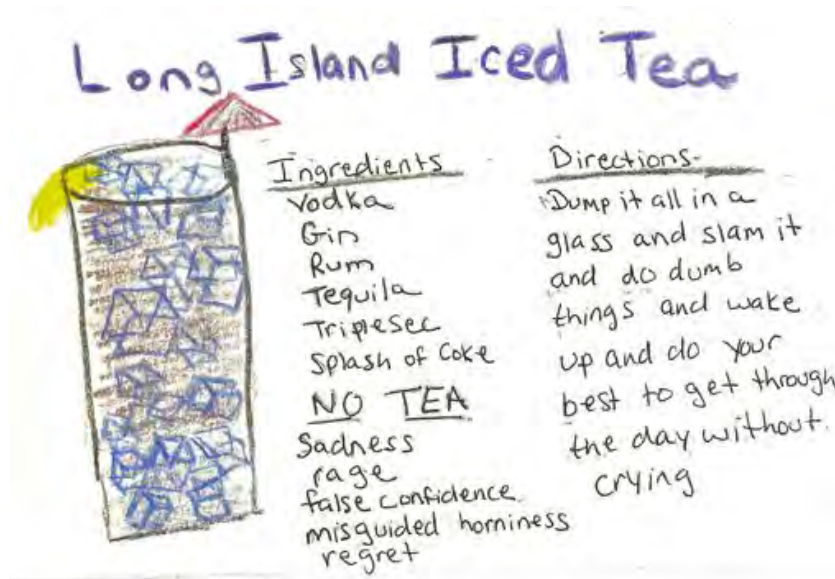 Long Island Iced Tea
Ingredients
Vodka
Gin
Rum
Tequila
Triple Sec
Splash of Coke
NO TEA
Sadness
rage
false confidence
misguided horniness
regret
Directions
Dump it all in a
glass and slam it
and do dumb
things and wake
up and do your
best to get through
the day without
crying